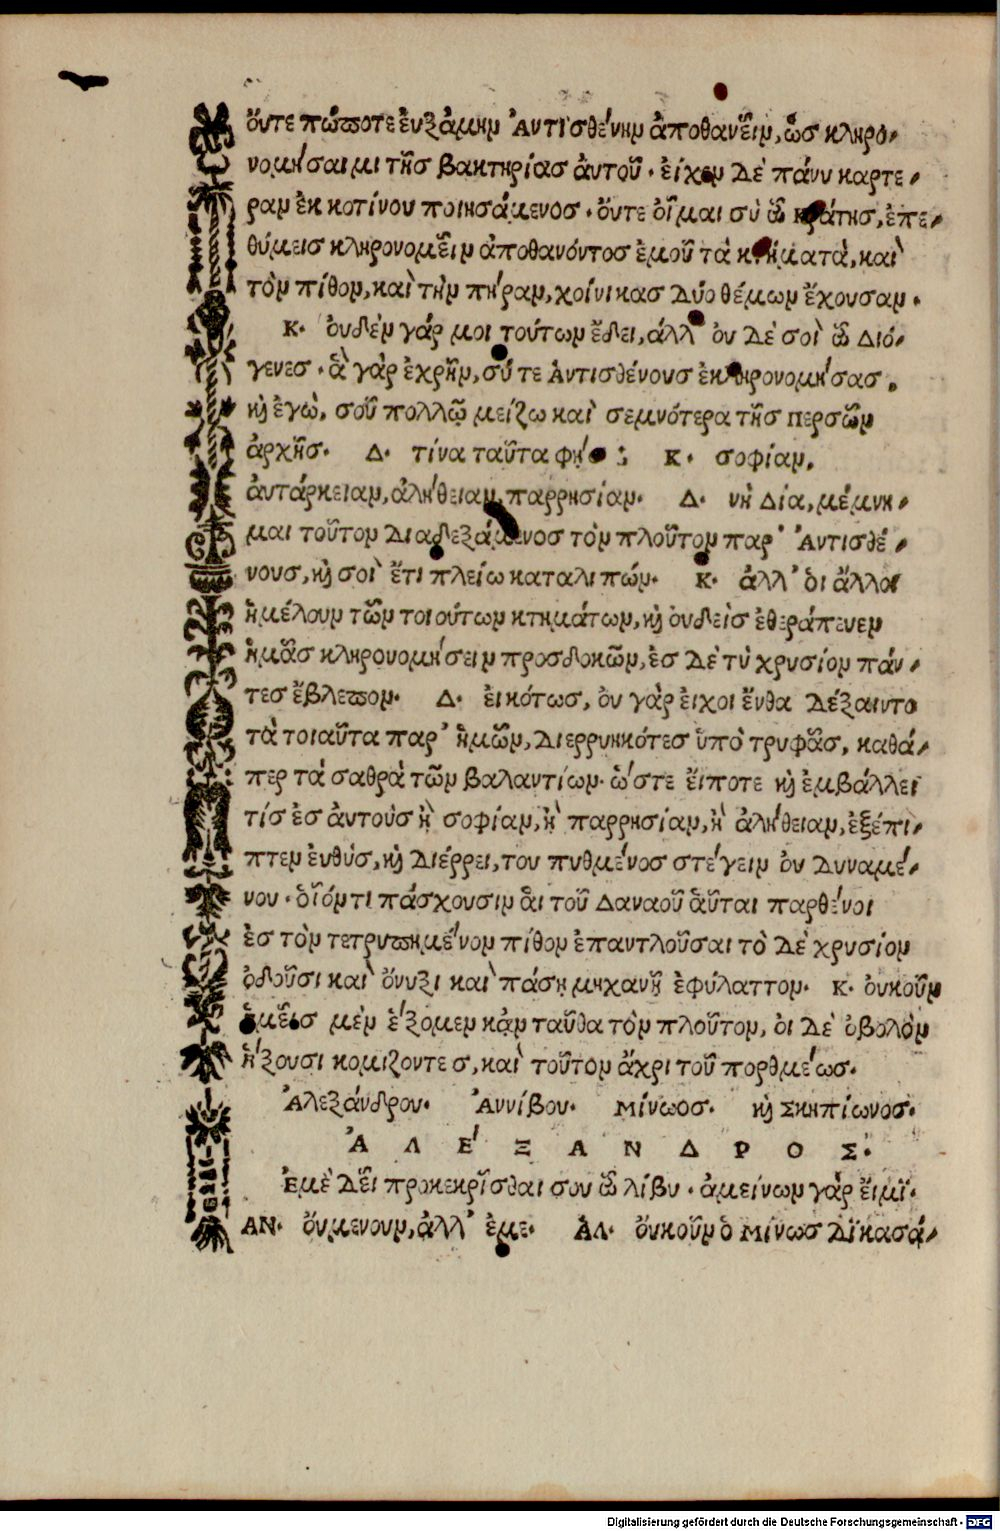 ὄυτε πώποτε ἐυξάμην Ἀντισθένην ἀποθανεῖν, ὧσ κληρο-
νομήσαιμι τῆσ βακτηρίασ ἀυτοῦ· ἐίχεν δὲ πάνυ καρτε-
ραν ἐκ κοτίνου ποιησάμενοσ· ὄυτε οἶμαι σὺ ὦ κράτησ, ἐπε-
θύμεισ κληρονομεῖν ἀποθανόντοσ ἐμοῦ τὰ κτήματὰ, καὶ
τὸν πίθον, καὶ τὴν πήραν, χοίνικασ δύο θέμων ἔχουσαν.
Κ. ὀυδέν γάρ μοι τούτων ἔδει, άλλ ὀυ δὲ σοὶ ὦ Διό-
γενεσ· ἃ γὰρ ἐχρῆν, σύ τε Ἀντισθένουσ ἐκληρονομήσασ,
κ̣ ἐγὼ, σοῦ πολλῷ μείζω καὶ σεμνότερα τῆσ Περσῶν
ἀρχῆσ. Δ. τίνα ταῦτα φήσ; Κ. σοφίαν,
ἀυτάρκειαν, ἀλήθειαν, παρρησίαν. Δ. νὴ Δία, μέμνη-
μαι τοῦτον διαδεξάμενοσ τὸν πλοῦτον παρ' Ἀντισθέ-
νουσ, κ̣ σοὶ ἔτι πλείω καταλιπών. Κ. ἀλλ' ὁι ἄλλοι
ἠμέλουν τῶν τοιούτων κτημάτων, κ̣ ὀυδεὶσ ἐθεράπευεν
ἡμᾶσ κληρονομήσειν προσδοκῶν, ἐσ δὲ τὺ χρυσίον πάν-
τεσ ἔβλεπον. Δ. ἐικότωσ, ὀυ γὰρ ἐιχοι ἔνθα δέξαιντο
τὰ τοιαῦτα παρ' ἡμῶν, διερρυηκότεσ ὑπὸ τρυφᾶσ, καθά-
περ τά σαθρὰ τῶν βαλαντίων· ὥστε ἔιποτε κ̣ ἐμβάλλει
τίσ ἐσ ἀυτοὺσ ἢ σοφίαν, ἢ παρρησίαν, ἢ ἀλήθειαν, ἐξέπι-
πτεν ἐυθὺσ, κ̣ διέρρει, του πυθμένοσ στέγειν ὀυ δυναμέ-
νου· ὁἷόντι πάσχουσιν ἁι τοῦ Δαναοῦ ἇυται παρθένοι
ἐσ τὸν τετρυπημένον πίθον ἐπαντλοῦσαι τὸ δὲ χρυσίον
ὀδοῦσι καὶ ὄνυξι καὶ πάσῃ μηχανῇ ἐφύλαττον. Κ. ὀυκοῦν
ἡμεῖσ μὲν ἕξομεν κἀν ταῦθα τὸν πλοῦτον, ὁι δὲ ὀβολὸν
ἥξουσι κομιζοντεσ, καὶ τοῦτον ἄχρι τοῦ πορθμέωσ.
Ἀλεξάνδρου. Ἀννίβου. Μίνωοσ. κ̣ Σκηπίωνοσ.
ἈΛΕΞΑΝΔΡΟΣ.
Ἐμὲ δεῖ προκεκρῖσθαι σου ὦ λίβυ. ἀμείνων γάρ ἔιμϊ.
ΑΝ. ὄυμενουν, ἀλλ' ἐμε. ΑΛ. ὄυκοῦν ὁ Μίνωσ δϊκασά-
Digitalisierung gefördert durch die Deutsche Forschungsgemeinschaft - DFG